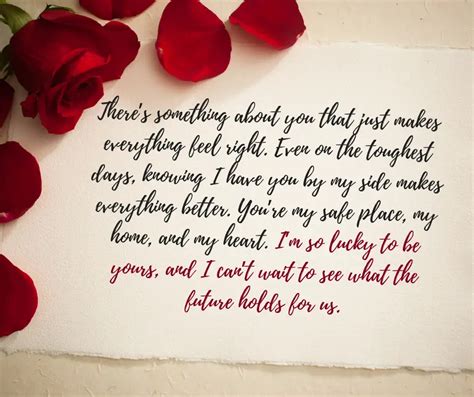 There's something about you that just makes
everything feel right. Even on the toughest
days, knowing I have you by my side makes
everything better. You're my safe place, my
home, and my heart. I'm so lucky to be
yours, and I can't wait to see what the
future holds for us.